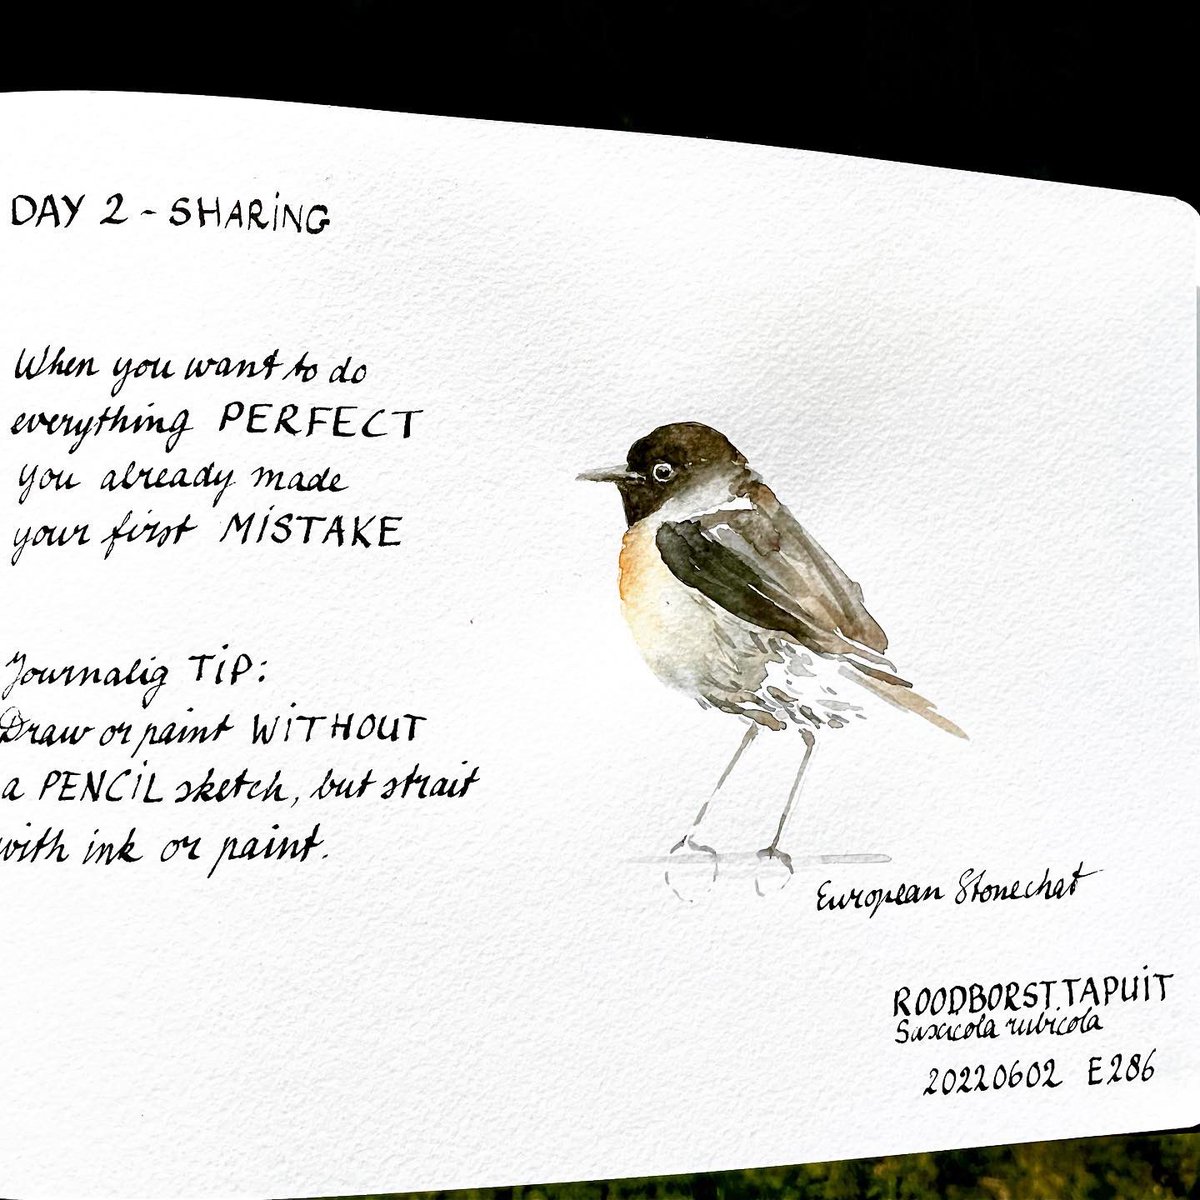 DAY 2 - SHARING
When you want to do
everything PERFECT
you already made
your first MISTAKE
Journalig TIP:
Draw or paint WITHOUT
a PENCIL sketch, but strait
with ink or paint.
European Stonechat
ROODBORSTTAPUIT
Saxicola rubicola
20220602 E286